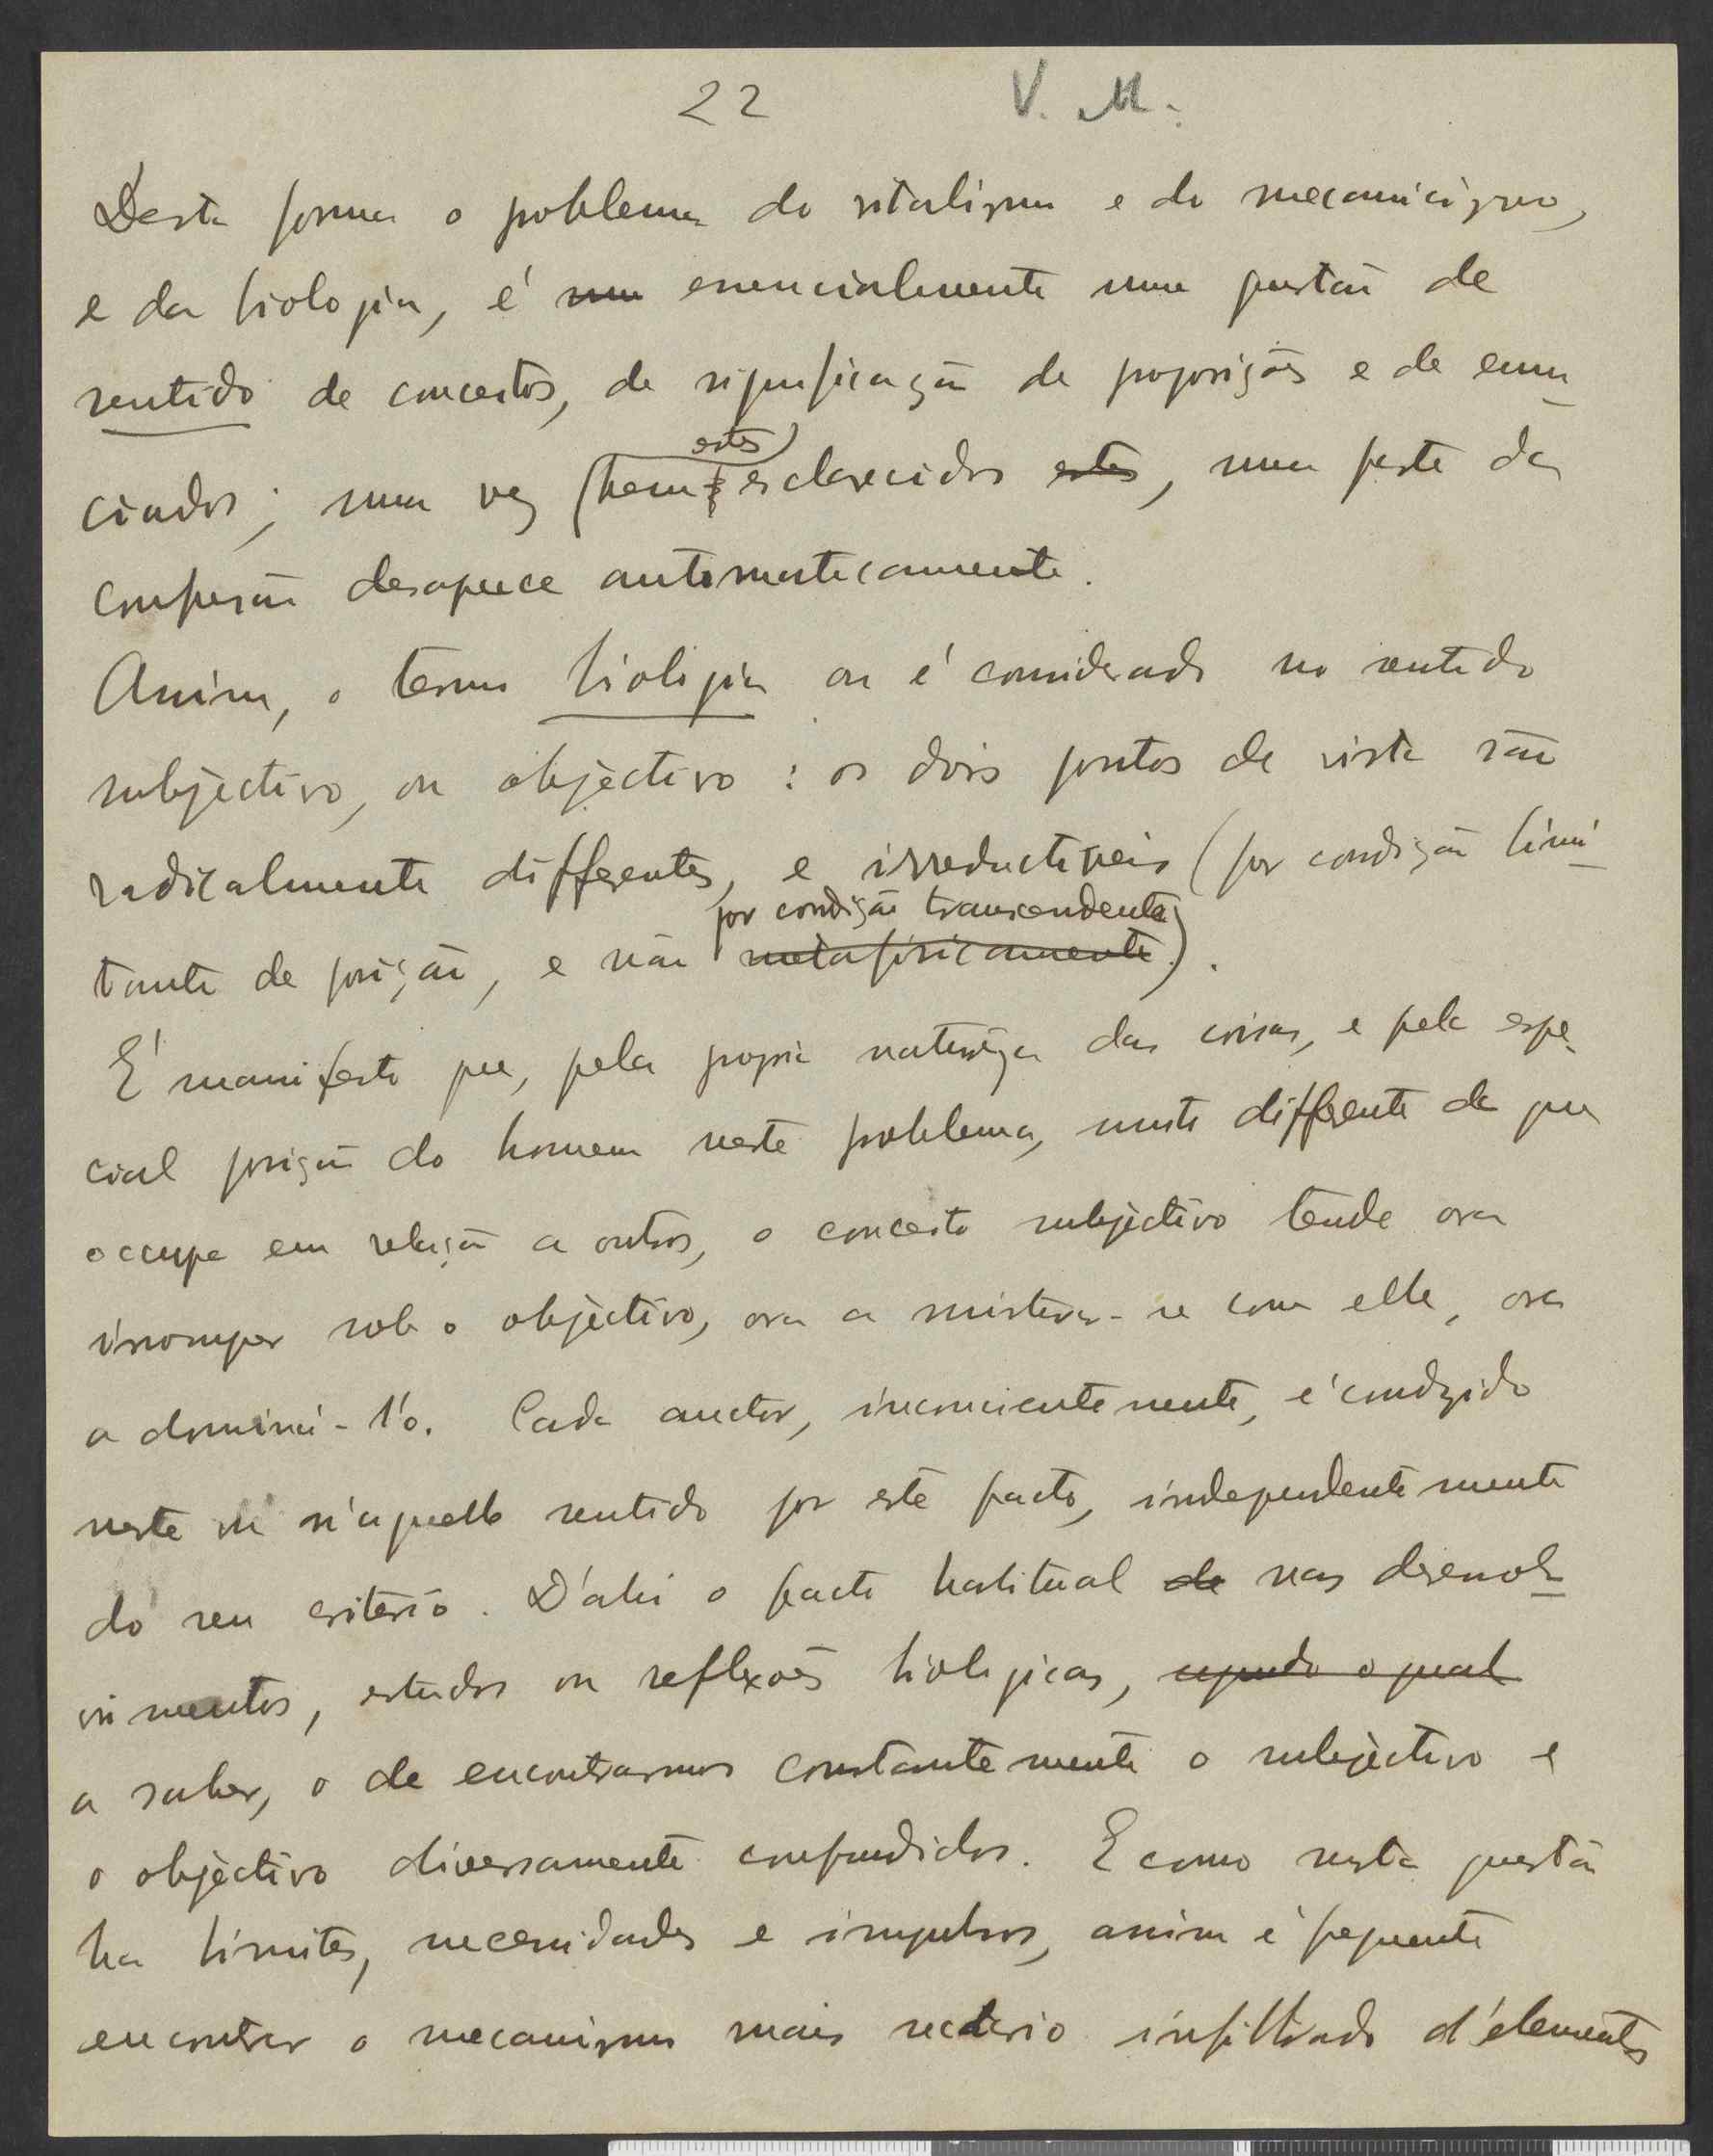 22 V. M.
Desta forma o problema do vitalismo e do mecanicismo,
e da biologia, é uma essencialmente uma questão de
sentido de conceitos, de significação de proposições e de enun-
ciados; uma vez bem estes esclarecidos estes, uma parte da
confusão desaparece automaticamente.
Assim, o termo biologia ou é considerado no sentido
subjectivo, ou objectivo: os dois pontos de vista são
radicalmente differentes, e irreductiveis (por condição limi-
tante de posição, e não por condição transcendente metafisicamente).
É manifesto que, pela propria natureza das coisas, e pela espe-
cial posição do homem neste problema, muito differente da que
occupa em relação a outros, o conceito subjectivo tende ora
irromper sob o objectivo, ora a misturar-se com elle, ora
a domina-l'o. Cada auctor, inconscientemente, é conduzido
neste ou n'aquelle sentido por este facto, independentemente
do seu criterio. D'ahi o facto habitual de nos desenvol-
vimentos, estudos ou reflexões biologicas, segundo o qual
a saber, o de encontrarmos constantemente o subjectivo e
o objectivo diversamente confundidos. E como nesta questão
ha limites, necessidades e impulsos, assim é frequente
encontrar o mecanismo mais infiltrado d'elementos